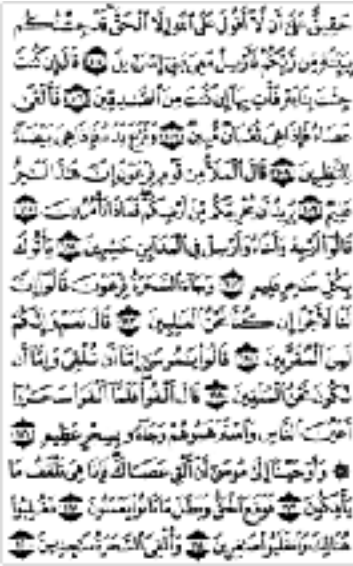 حَقِيقٌ عَلَىٰٓ أَن لَّآ أَقُولَ عَلَى ٱللَّهِ إِلَّا ٱلۡحَقَّۚ قَدۡ جِئۡتُكُم
بِبَيِّنَةٖ مِّن رَّبِّكُمۡ فَأَرۡسِلۡ مَعِيَ بَنِيٓ إِسۡرَٰٓءِيلَ قَالَ إِن كُنتَ
جِئۡتَ بِـَٔايَةٖ فَأۡتِ بِهَآ إِن كُنتَ مِنَ ٱلصَّٰدِقِينَ فَأَلۡقَىٰ
عَصَاهُ فَإِذَا هِيَ ثُعۡبَانٞ مُّبِينٞ وَنَزَعَ يَدَهُۥ فَإِذَا هِيَ بَيۡضَآءُ
لِلنَّٰظِرِينَ قَالَ ٱلۡمَلَأُ مِن قَوۡمِ فِرۡعَوۡنَ إِنَّ هَٰذَا لَسَٰحِرٌ
عَلِيمٞ يُرِيدُ أَن يُخۡرِجَكُم مِّنۡ أَرۡضِكُمۡۖ فَمَاذَا تَأۡمُرُونَ
قَالُوٓاْ أَرۡجِهۡ وَأَخَاهُ وَأَرۡسِلۡ فِي ٱلۡمَدَآئِنِ حَٰشِرِينَ يَأۡتُوكَ
بِكُلِّ سَٰحِرٍ عَلِيمٖ وَجَآءَ ٱلسَّحَرَةُ فِرۡعَوۡنَ قَالُوٓاْ إِنَّ
لَنَا لَأَجۡرًا إِن كُنَّا نَحۡنُ ٱلۡغَٰلِبِينَ قَالَ نَعَمۡ وَإِنَّكُمۡ
لَمِنَ ٱلۡمُقَرَّبِينَ قَالُواْ يَٰمُوسَىٰٓ إِمَّآ أَن تُلۡقِيَ وَإِمَّآ أَن
نَّكُونَ نَحۡنُ ٱلۡمُلۡقِينَ قَالَ أَلۡقُواْۖ فَلَمَّآ أَلۡقَوۡاْ سَحَرُوٓاْ
أَعۡيُنَ ٱلنَّاسِ وَٱسۡتَرۡهَبُوهُمۡ وَجَآءُو بِسِحۡرٍ عَظِيمٖ
۞ وَأَوۡحَيۡنَآ إِلَىٰ مُوسَىٰٓ أَنۡ أَلۡقِ عَصَاكَۖ فَإِذَا هِيَ تَلۡقَفُ مَا
يَأۡفِكُونَ فَوَقَعَ ٱلۡحَقُّ وَبَطَلَ مَا كَانُواْ يَعۡمَلُونَ فَغُلِبُواْ
هُنَالِكَ وَٱنقَلَبُواْ صَٰغِرِينَ وَأُلۡقِيَ ٱلسَّحَرَةُ سَٰجِدِينَ